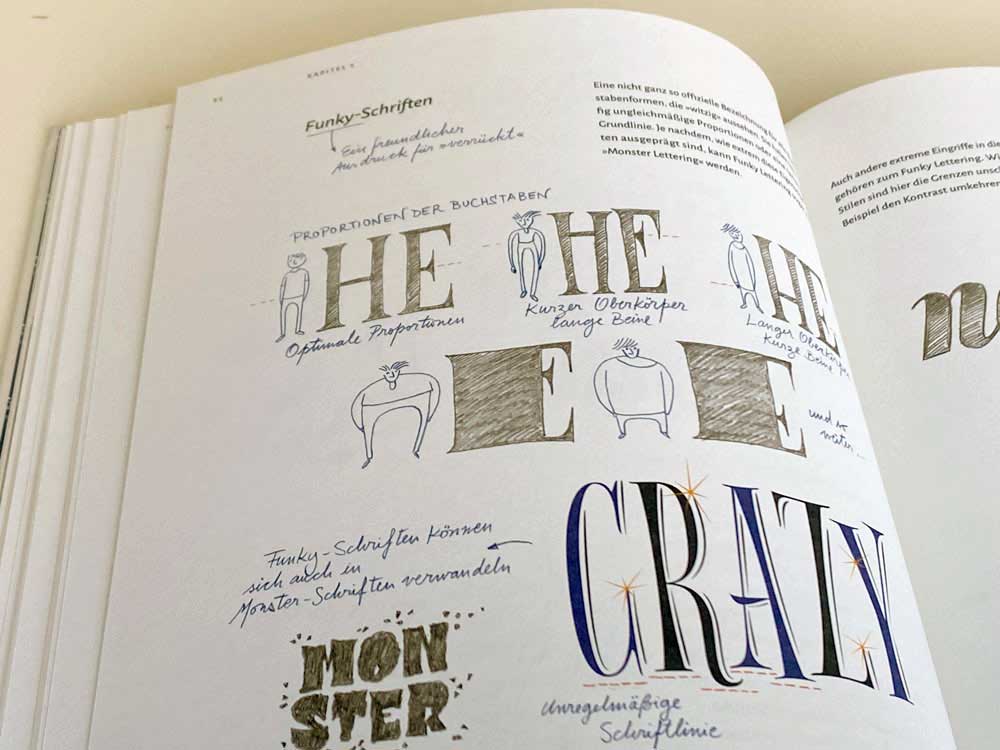 KAPITEL
Funky-Schriften
Ein freundlicher
Ausdruck für »verrückt«
Eine nicht ganz so offizielle Bezeichnung für
stabenformen, die »witzig« aussehen.
fig ungleichmäßige Proportionen oder
Grundlinie. Je nachdem, wie extrem diese
ten ausgeprägt sind, kann Funky Lettering
»Monster Lettering« werden.
PROPORTIONEN DER BUCHSTABEN
HE
HE
HE
Optimale Proportionen
Kurzer Oberkörper
lange Beine
Langer Oberkörper
Kurze Beine
E
E
und so
weiter...
Funky-Schriften können
sich auch in
Monster-Schriften verwandeln
CRAZY
MON
STER
Unregelmäßige
Schriftlinie
Auch andere extreme Eingriffe in die
gehören zum Funky Lettering.
Stilen sind hier die Grenzen
Beispiel den Kontrast umkehren